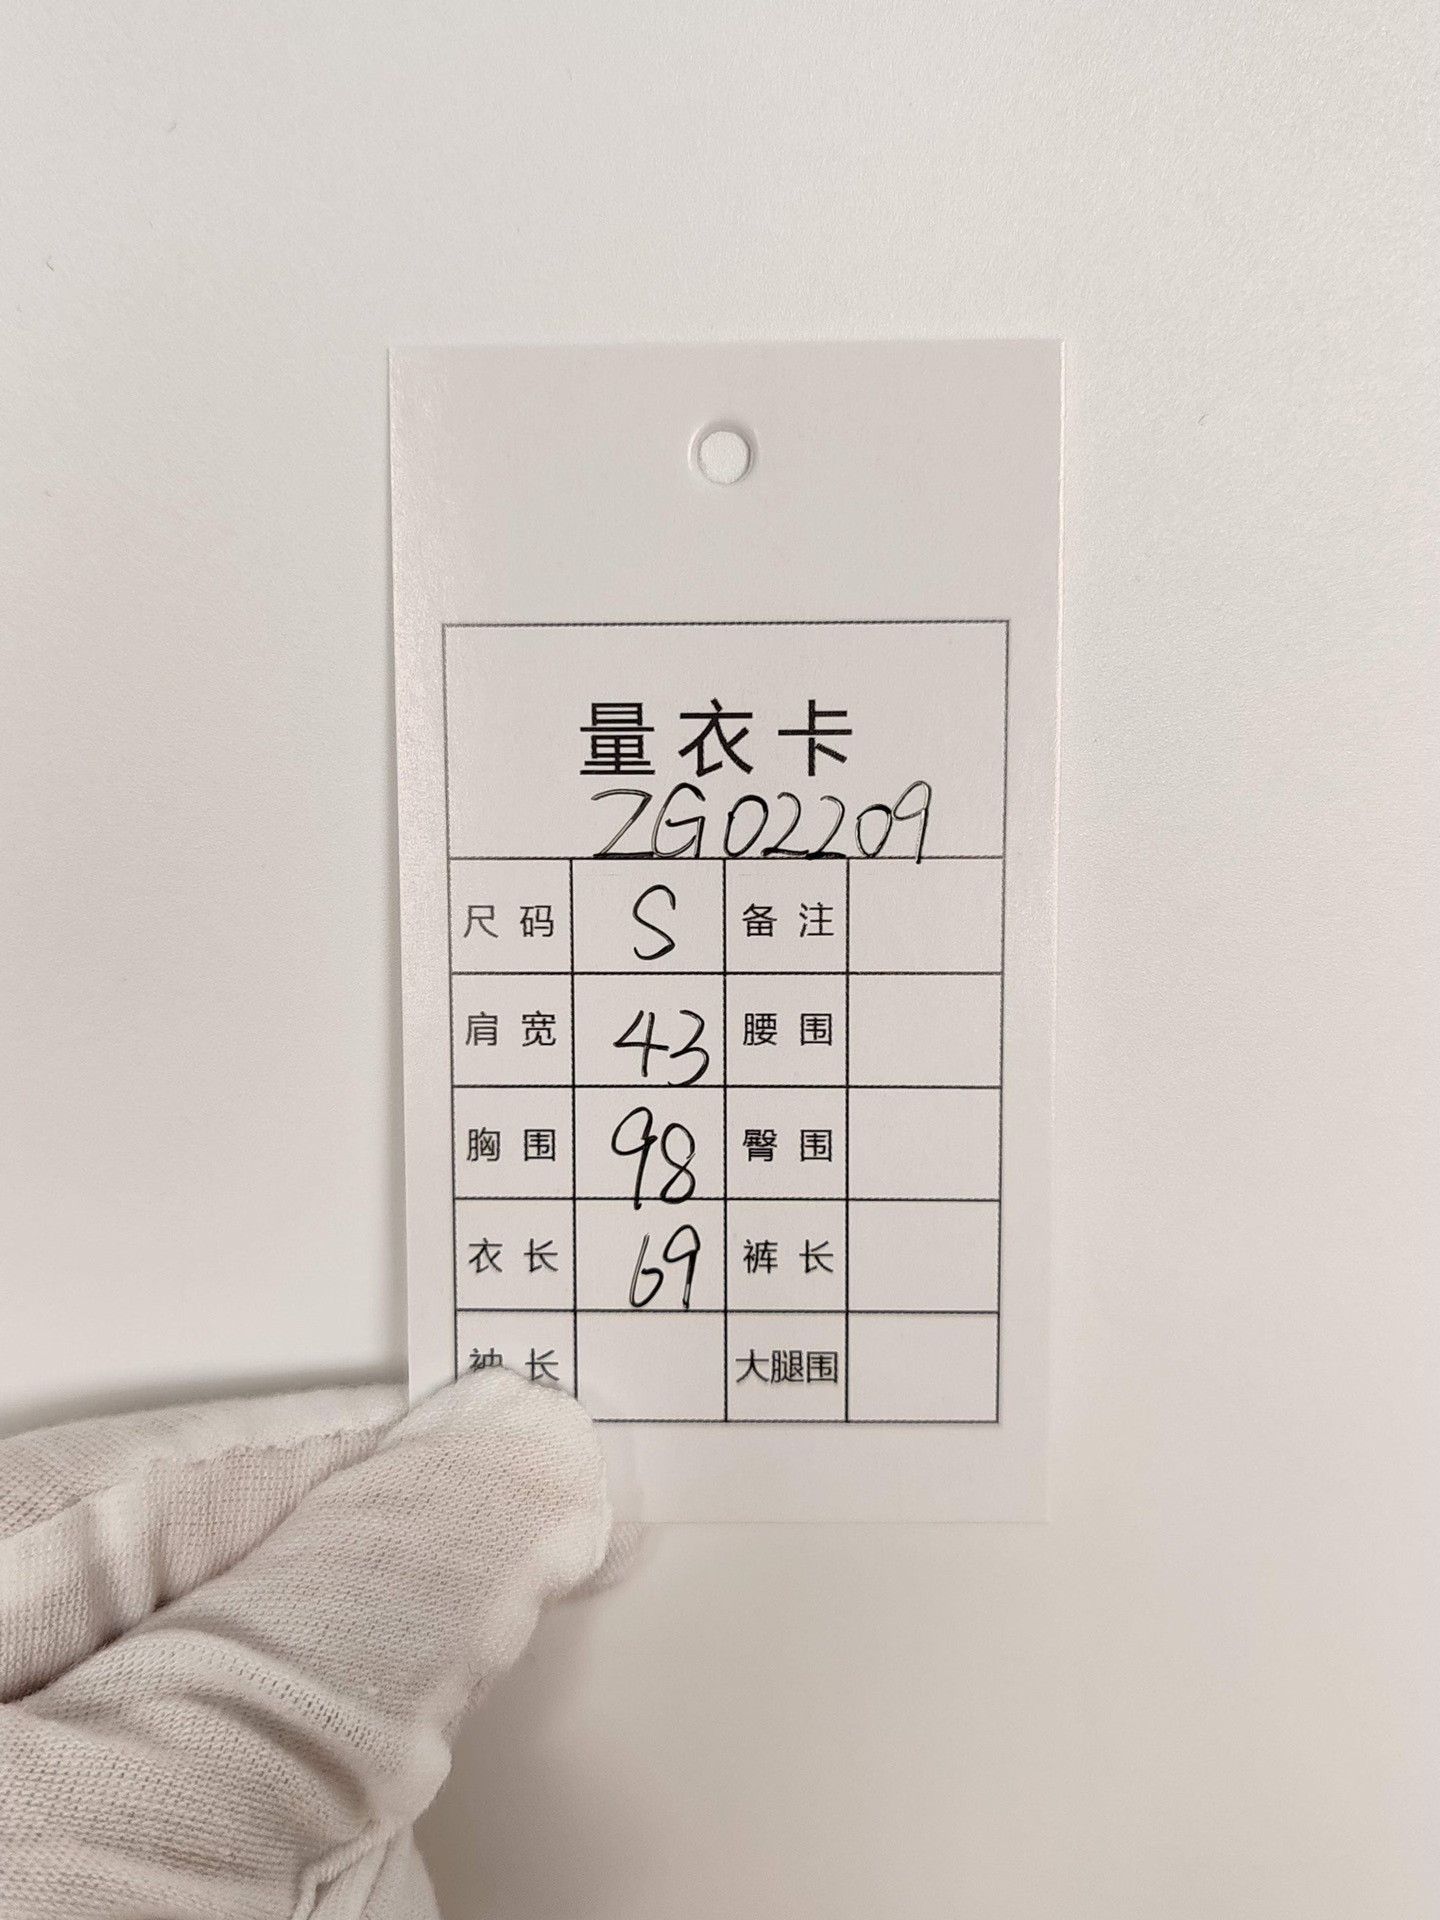 量衣卡
ZG02209
尺码 S 备注
肩宽 43 腰围
胸围 98 臀围
衣长 69 裤长
袖长 大腿围